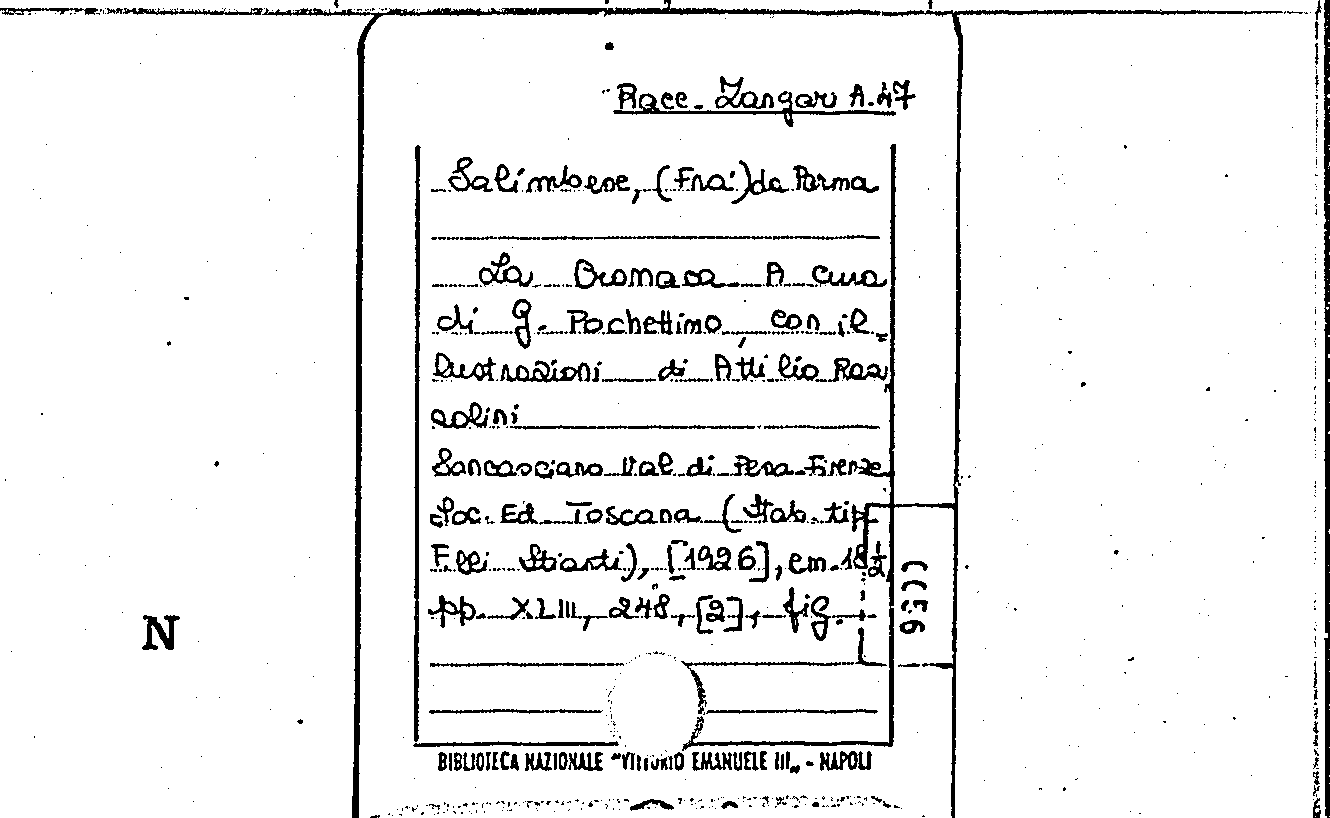 Racc. Zangari A.47
Salimbene, (Fra') da Parma
La Cronaca A cura
di G. Pochettino, con il=
lustrazioni di Attilio Raz,
zolini
Sancasciano Val di Pesa-Firenze
Soc. Ed. Toscana (Stab. tip.
F.lli Stianti), [1926], cm. 18½,
pp. XLIII, 248, [2], fig.
BIBLIOTECA NAZIONALE "VITTORIO EMANUELE III" - NAPOLI
N